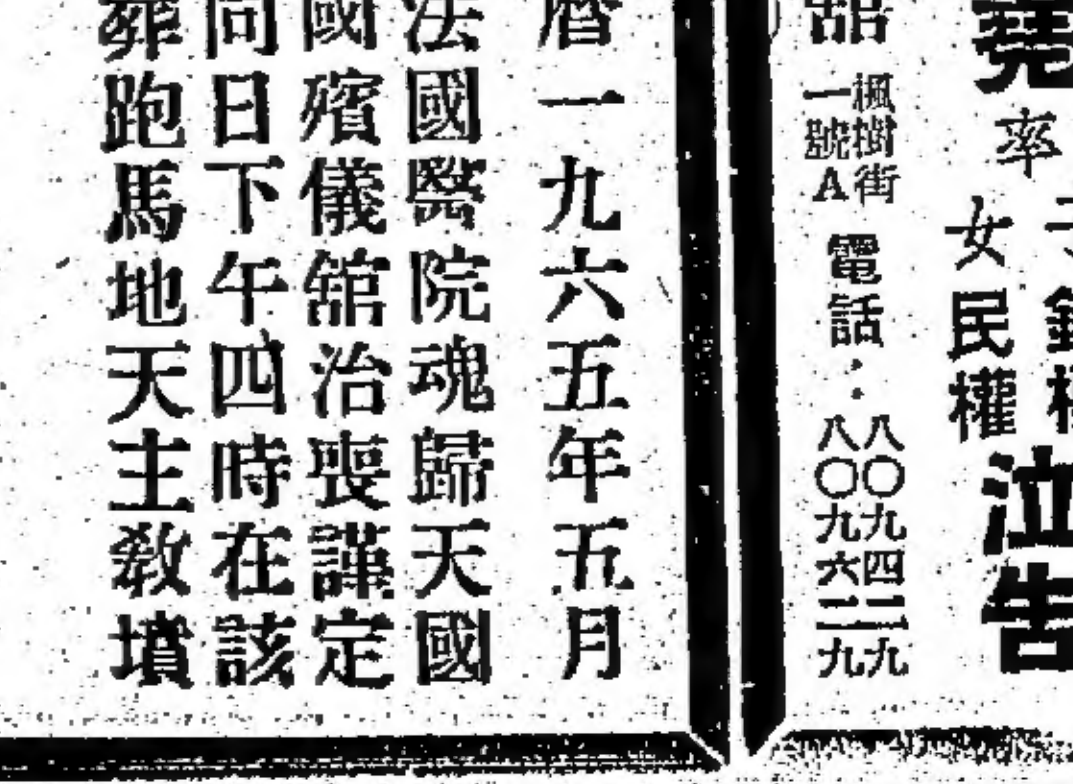 率
女民權
泣告
舘
楓樹街
一號A
電話：
八〇九四二九
八〇九六二九
曆一九六五年五月
法國醫院魂歸天國
國殯儀舘治喪謹定
同日下午四時在該
葬跑馬地天主教墳